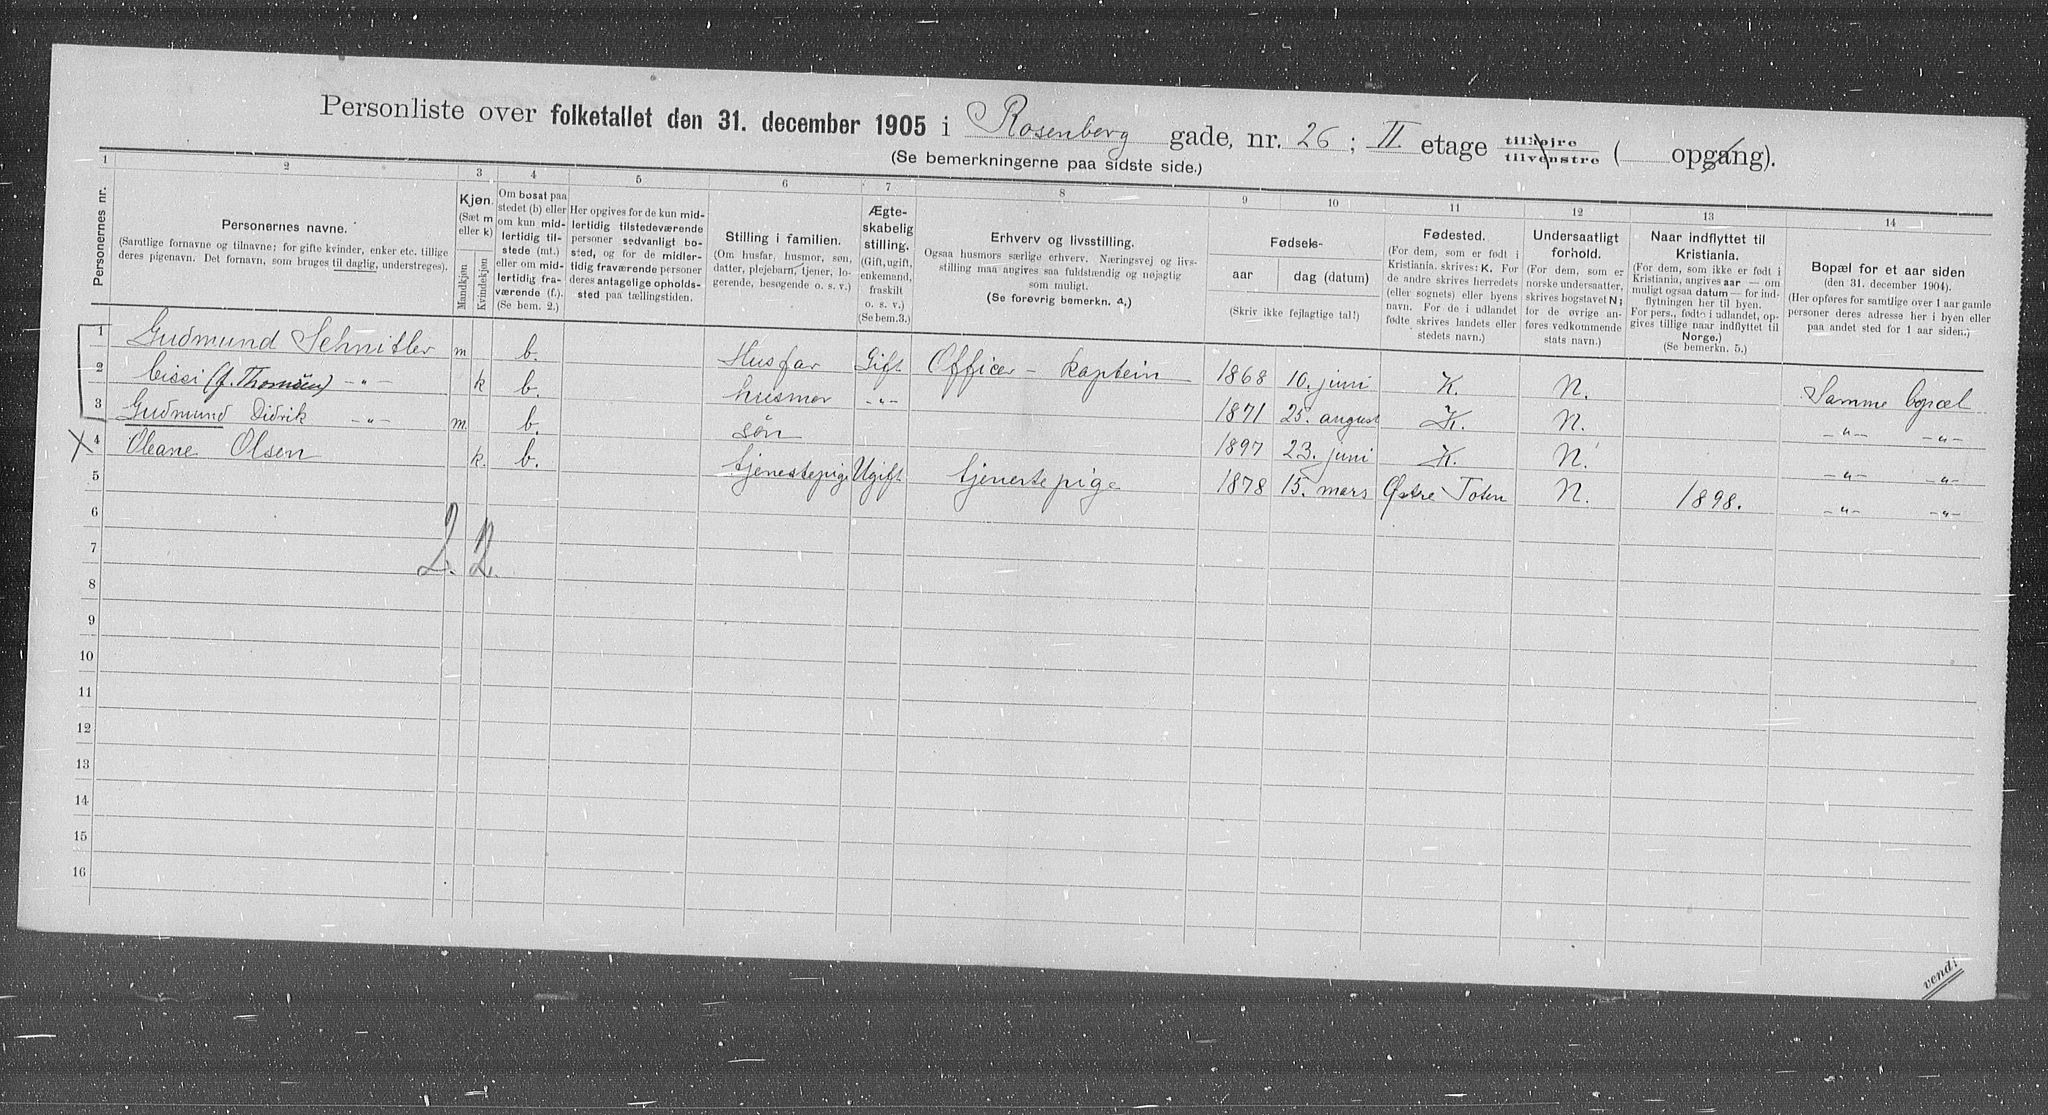 Personliste over folketallet den 31. december 1905 i Rosenberg gade, nr. 26 ; II etage tilhøjre tilvenstre ( opgang).
(Se bemerkningerne paa sidste side.)
1 2 3 4 5 6 7 8 9 10 11 12 13 14
Personernes nr.
Personernes navne.
(Samtlige fornavne og tilnavne; for gifte kvinder, enker etc. tillige
deres pigenavn. Det fornavn, som bruges til daglig, understreges).
Kjøn.
(Sæt m
eller k)
Mandkjøn
Kvindekjøn
Om bosat paa
stedet (b) eller
om kun mid-
lertidig til-
stede (mt.)
eller om mid-
lertidig fra-
værende (f.).
(Se bem. 2.)
Her opgives for de kun mid-
lertidig tilstedeværende
personer sedvanligt bo-
sted, og for de midler-
tidig fraværende personer
deres antagelige opholds-
sted paa tællingstiden.
Stilling i familien.
(Om husfar, husmor, søn,
datter, plejebarn, tjener, lo-
gerende, besøgende o. s. v.)
Ægte-
skabelig
stilling.
(Gift, ugift,
enkemand,
fraskilt
o. s. v.)
(Se bem.3.)
Erhverv og livsstilling.
Ogsaa husmors særlige erhverv. Næringsvej og livs-
stilling maa angives saa fuldstændig og nøjagtig
som muligt.
(Se forøvrig bemerkn. 4,)
Fødsels-
aar
dag (datum)
(Skriv ikke fejlagtige tal!)
Fødested.
(For dem, som er født i
Kristiania. skrives: K. For
de andre skrives herredets
(eller sognets) eller byens
navn. For de i udlandet
fødte skrives landets eller
stedets navn.)
Undersaatligt
forhold.
(For dem, som er
norske undersaatter,
skrives bogstavet N;
for de øvrige an-
føres vedkommende
stats navn.)
Naar indflyttet til
Kristiania.
(For dem, som ikke er født i
Kristiania, angives aar — om
muligt ogsaa datum — for ind-
flytningen her til byen.
For pers., fødte i udlandet, op-
gives tillige naar indflyttet til
Norge.)
(Se bemerkn. 5.)
Bopæl for et aar siden
(den 31. december 1904).
(Her opføres for samtlige over 1 aar gamle
personer deres adresse her i byen eller
paa andet sted for 1 aar siden.)
1 Gudmund Schnitler m b. Husfar Gift Officer - kaptein 1868 10. juni K. N. Samme bopæl
2 Cissi (f. Thomsen) -"- k b. husmor -"- 1871 25. august K. N. -"- -"-
3 Gudmund Didrik -"- m. b. søn 1897 23. juni K. N. -"- -"-
X 4 Oleane Olsen k. b. tjenestepige Ugift tjenestepige 1878 15. mars Østre Toten N. 1898. -"- -"-
5
6
2. 2.
7
8
9
10
11
12
13
14
15
16
vend!